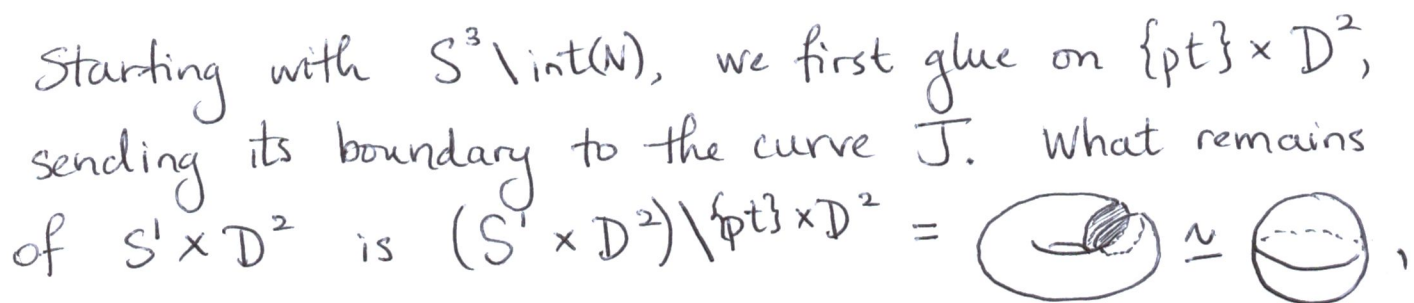 Starting with S³\int(N), we first glue on {pt} × D²,
sending its boundary to the curve J. What remains
of S¹×D² is (S¹×D²)\{pt}×D² = ≃ ,